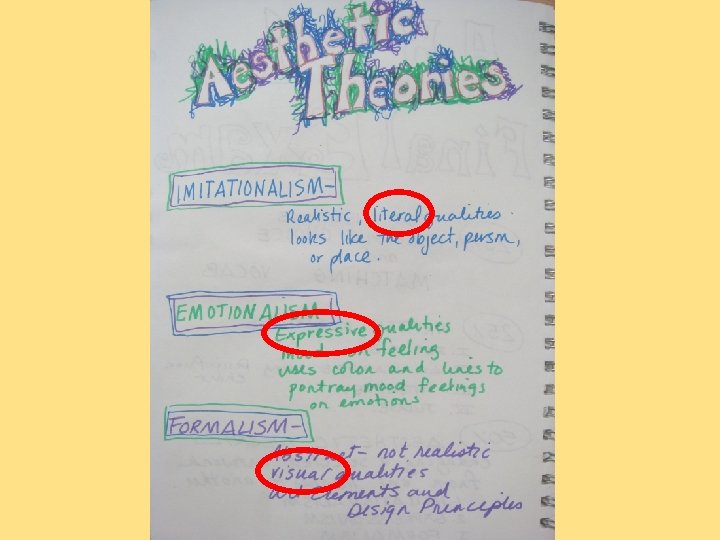 Aesthetic
Theories
IMITATIONALISM-
Realistic, literal qualities.
looks like the object, person,
or place.
EMOTIONALISM-
Expressive qualities
mood or feeling
uses color and lines to
portray mood feelings
or emotions
FORMALISM-
Abstract- not realistic
visual qualities
art Elements and
Design Principles
MATCHING VOCAB